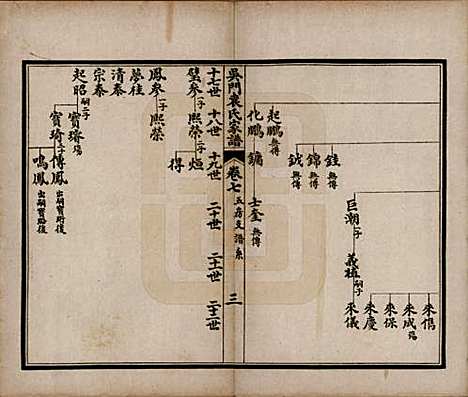 來儁
來成 殤
來保
來慶
來儀
義植 嗣子
巨潮 一子
銈 無傳
錦 無傳
鉞 無傳
起鵬 無傳
化鵬
鏞
士奎 無傳
吳門袁氏家譜
卷七
五房支譜系
三
十七世
十八世
十九世
二十世
二十一世
二十二世
璧參 一子
熙榮 二子
烜
得
鳳參 一子
熙榮
夢柱
清泰
宗泰
起昭 嗣二子
寶𤩽 殤
寶琦 二子
傅鳳 出嗣寶璐後
鳴鳳 出嗣寶璐後